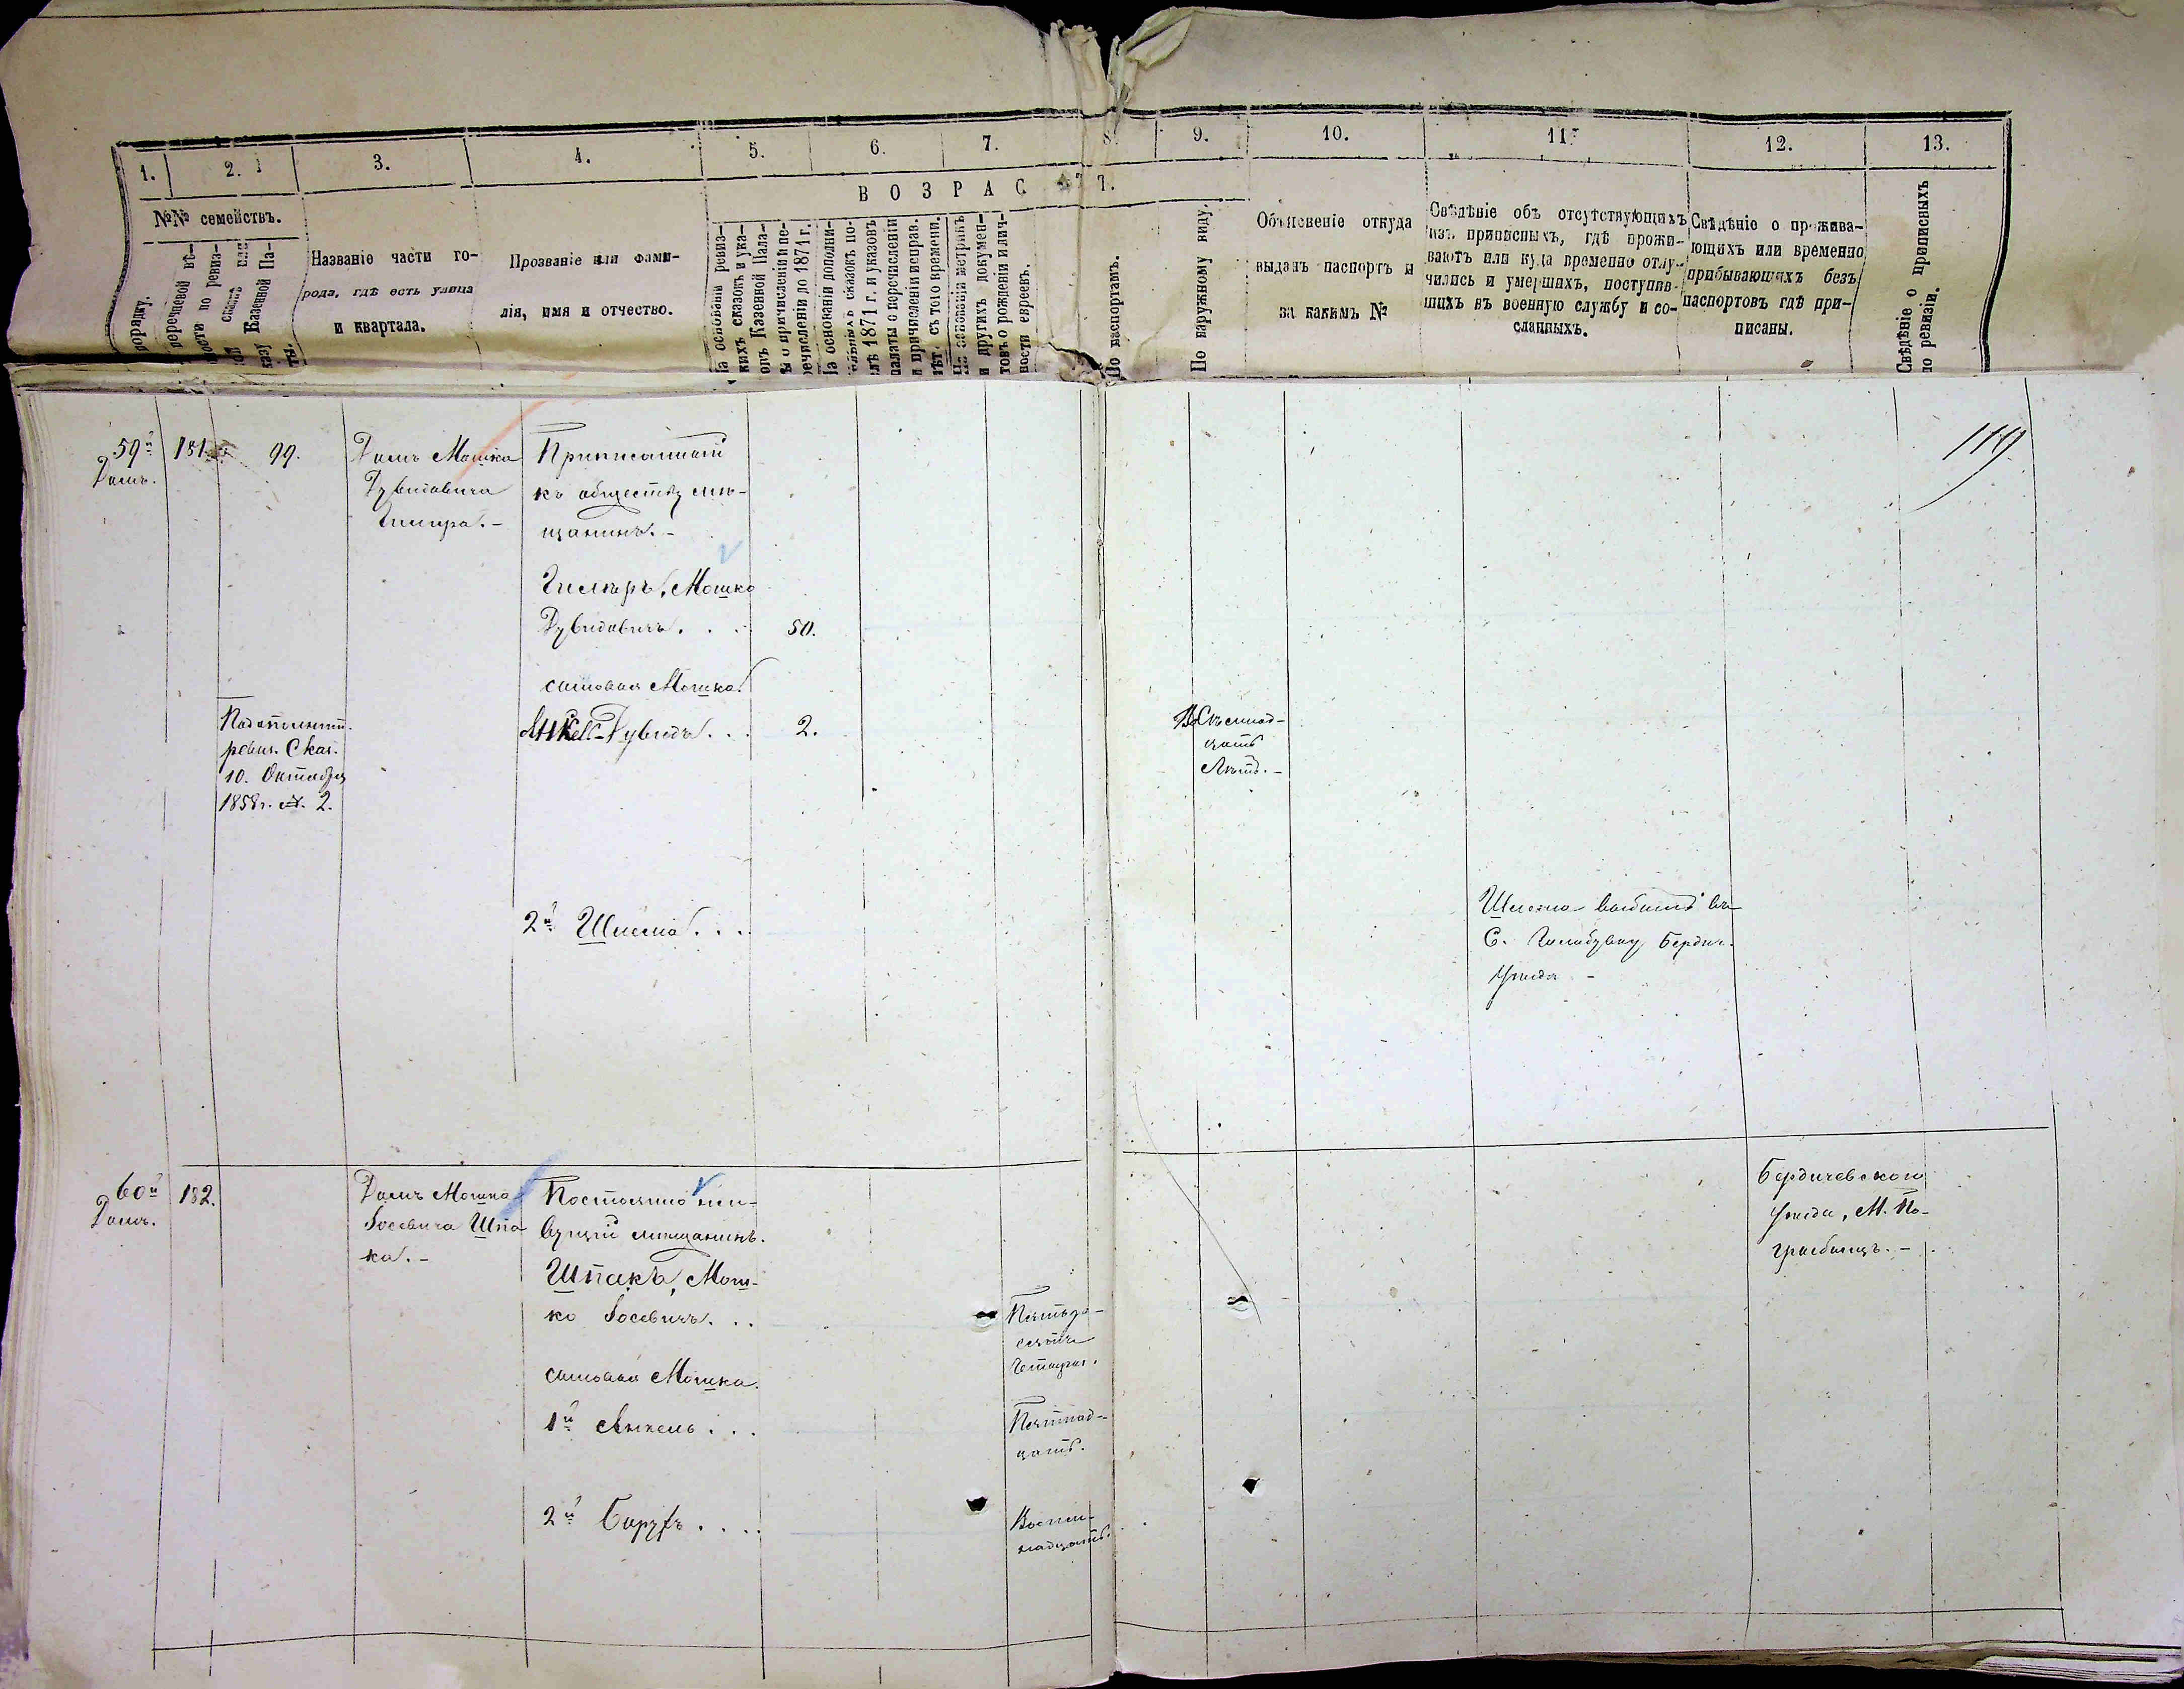 1.
2.
3.
4.
5.
6.
7.
8.
9.
10.
11.
12.
13.
ВОЗРАСТ.
№№ семействъ.
порядку.
перечневой вѣ-
мости по ревиз-
сказкѣ или
казу Казенной Па-
ты.
Названіе части го-
рода, гдѣ есть улица
и квартала.
Прозваніе или фами-
лія, имя и отчество.
На основаніи ревиз-
кихъ сказокъ и ука-
овъ Казенной Пала-
ы о причисленіи и пе-
речисленіи до 1871 г.
На основаніи дополни-
тельныхъ сказокъ по-
слѣ 1871 г. и указовъ
палаты о перечисленіи
и причисленіи исправ.
лѣт. съ того времени.
На основаніи метрикъ
и другихъ докумен-
товъ о рожденіи и лич-
ности евреевъ.
По паспортамъ.
По наружному виду.
Объясненіе откуда
выданъ паспортъ и
за какимъ №
Свѣдѣніе объ отсутствующихъ
изъ приписныхъ, гдѣ прожи-
ваютъ или куда временно отлу-
чились и умершихъ, поступив-
шихъ въ военную службу и со-
сланныхъ.
Свѣдѣніе о прожива-
ющихъ или временно
прибывающихъ безъ
паспортовъ гдѣ при-
писаны.
Свѣдѣніе о приписныхъ
по ревизіи.
119
59й
Домъ.
181.
99.
Домъ Мошка
Дувидовича
Гимера. -
Приписанный
къ обществу мѣ-
щанинъ. -
Гимеръ, Мошко
Дувидовичъ. . .
50.
сыновья Мошка
Янкель-Дувидъ. . .
2.
Восемнад-
цать
Лѣтъ. -
ревиз. Сказ.
10. Октября
1858 г. № 2.
2й Шлема. . .
Шлема выбылъ въ
С. Бердич.
Уѣзда -
60й
Домъ.
182.
Домъ Мошка
Іосевича Шпа
ка. -
Постоянно жи-
вущій мѣщанинъ.
Шпакъ, Мош-
ко Іосевичъ. . .
Пятьде-
сятъ
Четыре.
сыновья Мошка.
1й Янкель. . .
Пятнад-
цать.
2й Барухъ. . . .
Восем-
надцать.
Бердичевского
Уѣзда, М. По-
гребищъ. -